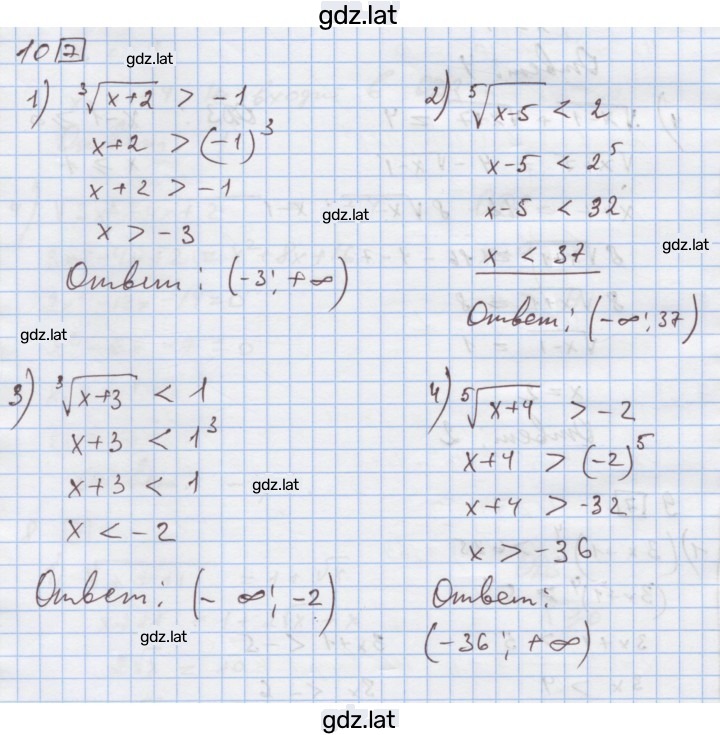 gdz.lat
10 7
gdz.lat
1) ∛(x+2) > -1
x+2 > (-1)³
x+2 > -1
x > -3
Ответ: (-3; +∞)
2) ⁵√(x-5) < 2
x-5 < 2⁵
x-5 < 32
x < 37
Ответ: (-∞; 37)
gdz.lat
gdz.lat
gdz.lat
3) ∛(x+3) < 1
x+3 < 1³
x+3 < 1
x < -2
Ответ: (-∞; -2)
gdz.lat
gdz.lat
4) ⁵√(x+4) > -2
x+4 > (-2)⁵
x+4 > -32
x > -36
Ответ:
(-36; +∞)
gdz.lat